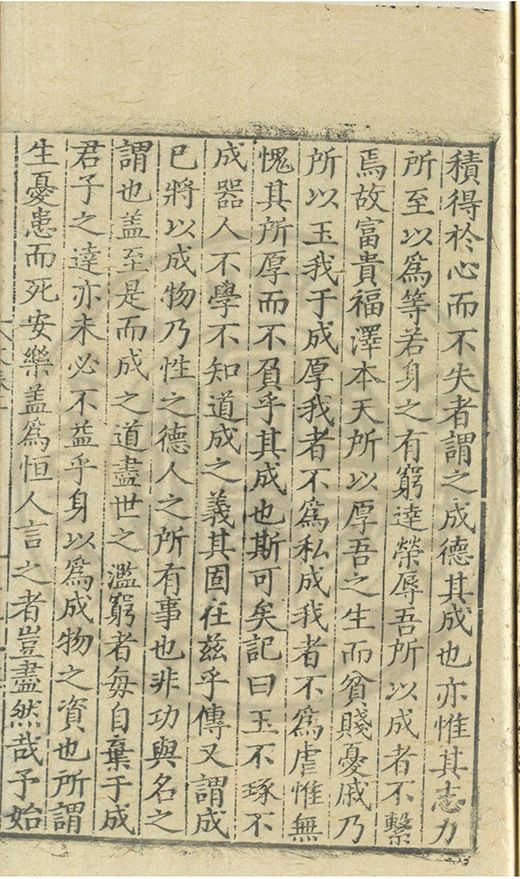 積得於心而不失者謂之成德其成也亦惟其志力
所至以爲等若身之有窮達榮辱吾所以成者不繫
焉故富貴福澤本天所以厚吾之生而貧賤憂戚乃
所以玉我于成厚我者不爲私成我者不爲虐惟無
愧其所厚而不負乎其成也斯可矣記曰玉不琢不
成器人不學不知道成之義其固在玆乎傳又謂成
已將以成物乃性之德人之所有事也非功與名之
謂也盖至是而成之道盡世之濫窮者每自棄于成
君子之達亦未必不益乎身以爲成物之資也所謂
生憂患而死安樂盖爲恒人言之者豈盡然哉予始